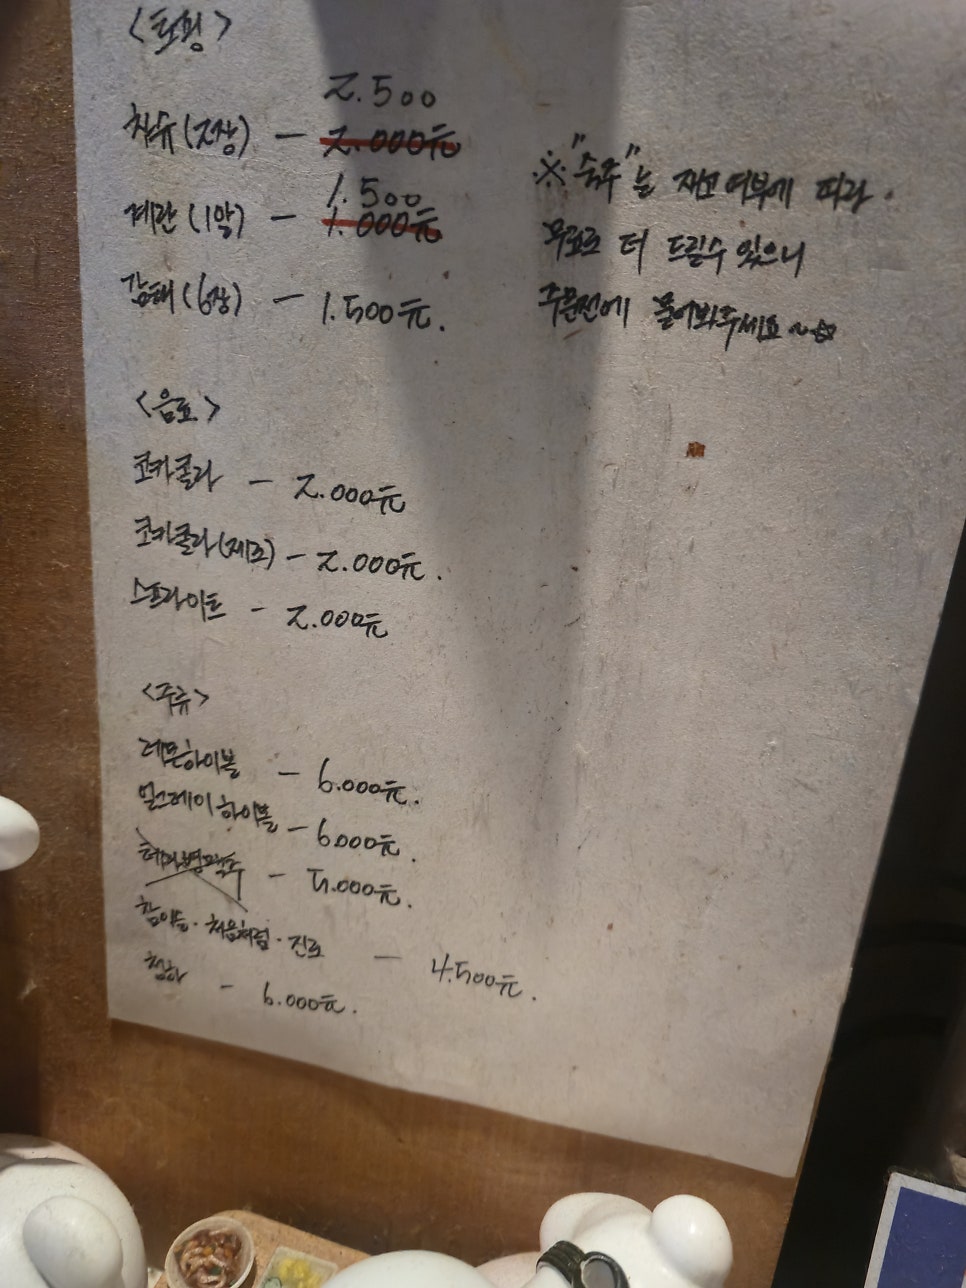 <토핑>
2.500
차슈(2장) - 2.000元
1.500
계란(1알) - 1.000元
감태(6장) - 1.500元.
※ "숙주"는 재고 여부에 따라.
무료로 더 드릴수 있으니
주문전에 물어봐주세요~☆
<음료>
코카콜라 - 2.000元
코카콜라(제로) - 2.000元.
스프라이트 - 2.000元
<주류>
레몬하이볼 - 6.000元.
얼그레이 하이볼 - 6.000元.
테라병맥주 - 5.000元.
참이슬·처음처럼·진로 - 4.500元.
청하 - 6.000元.